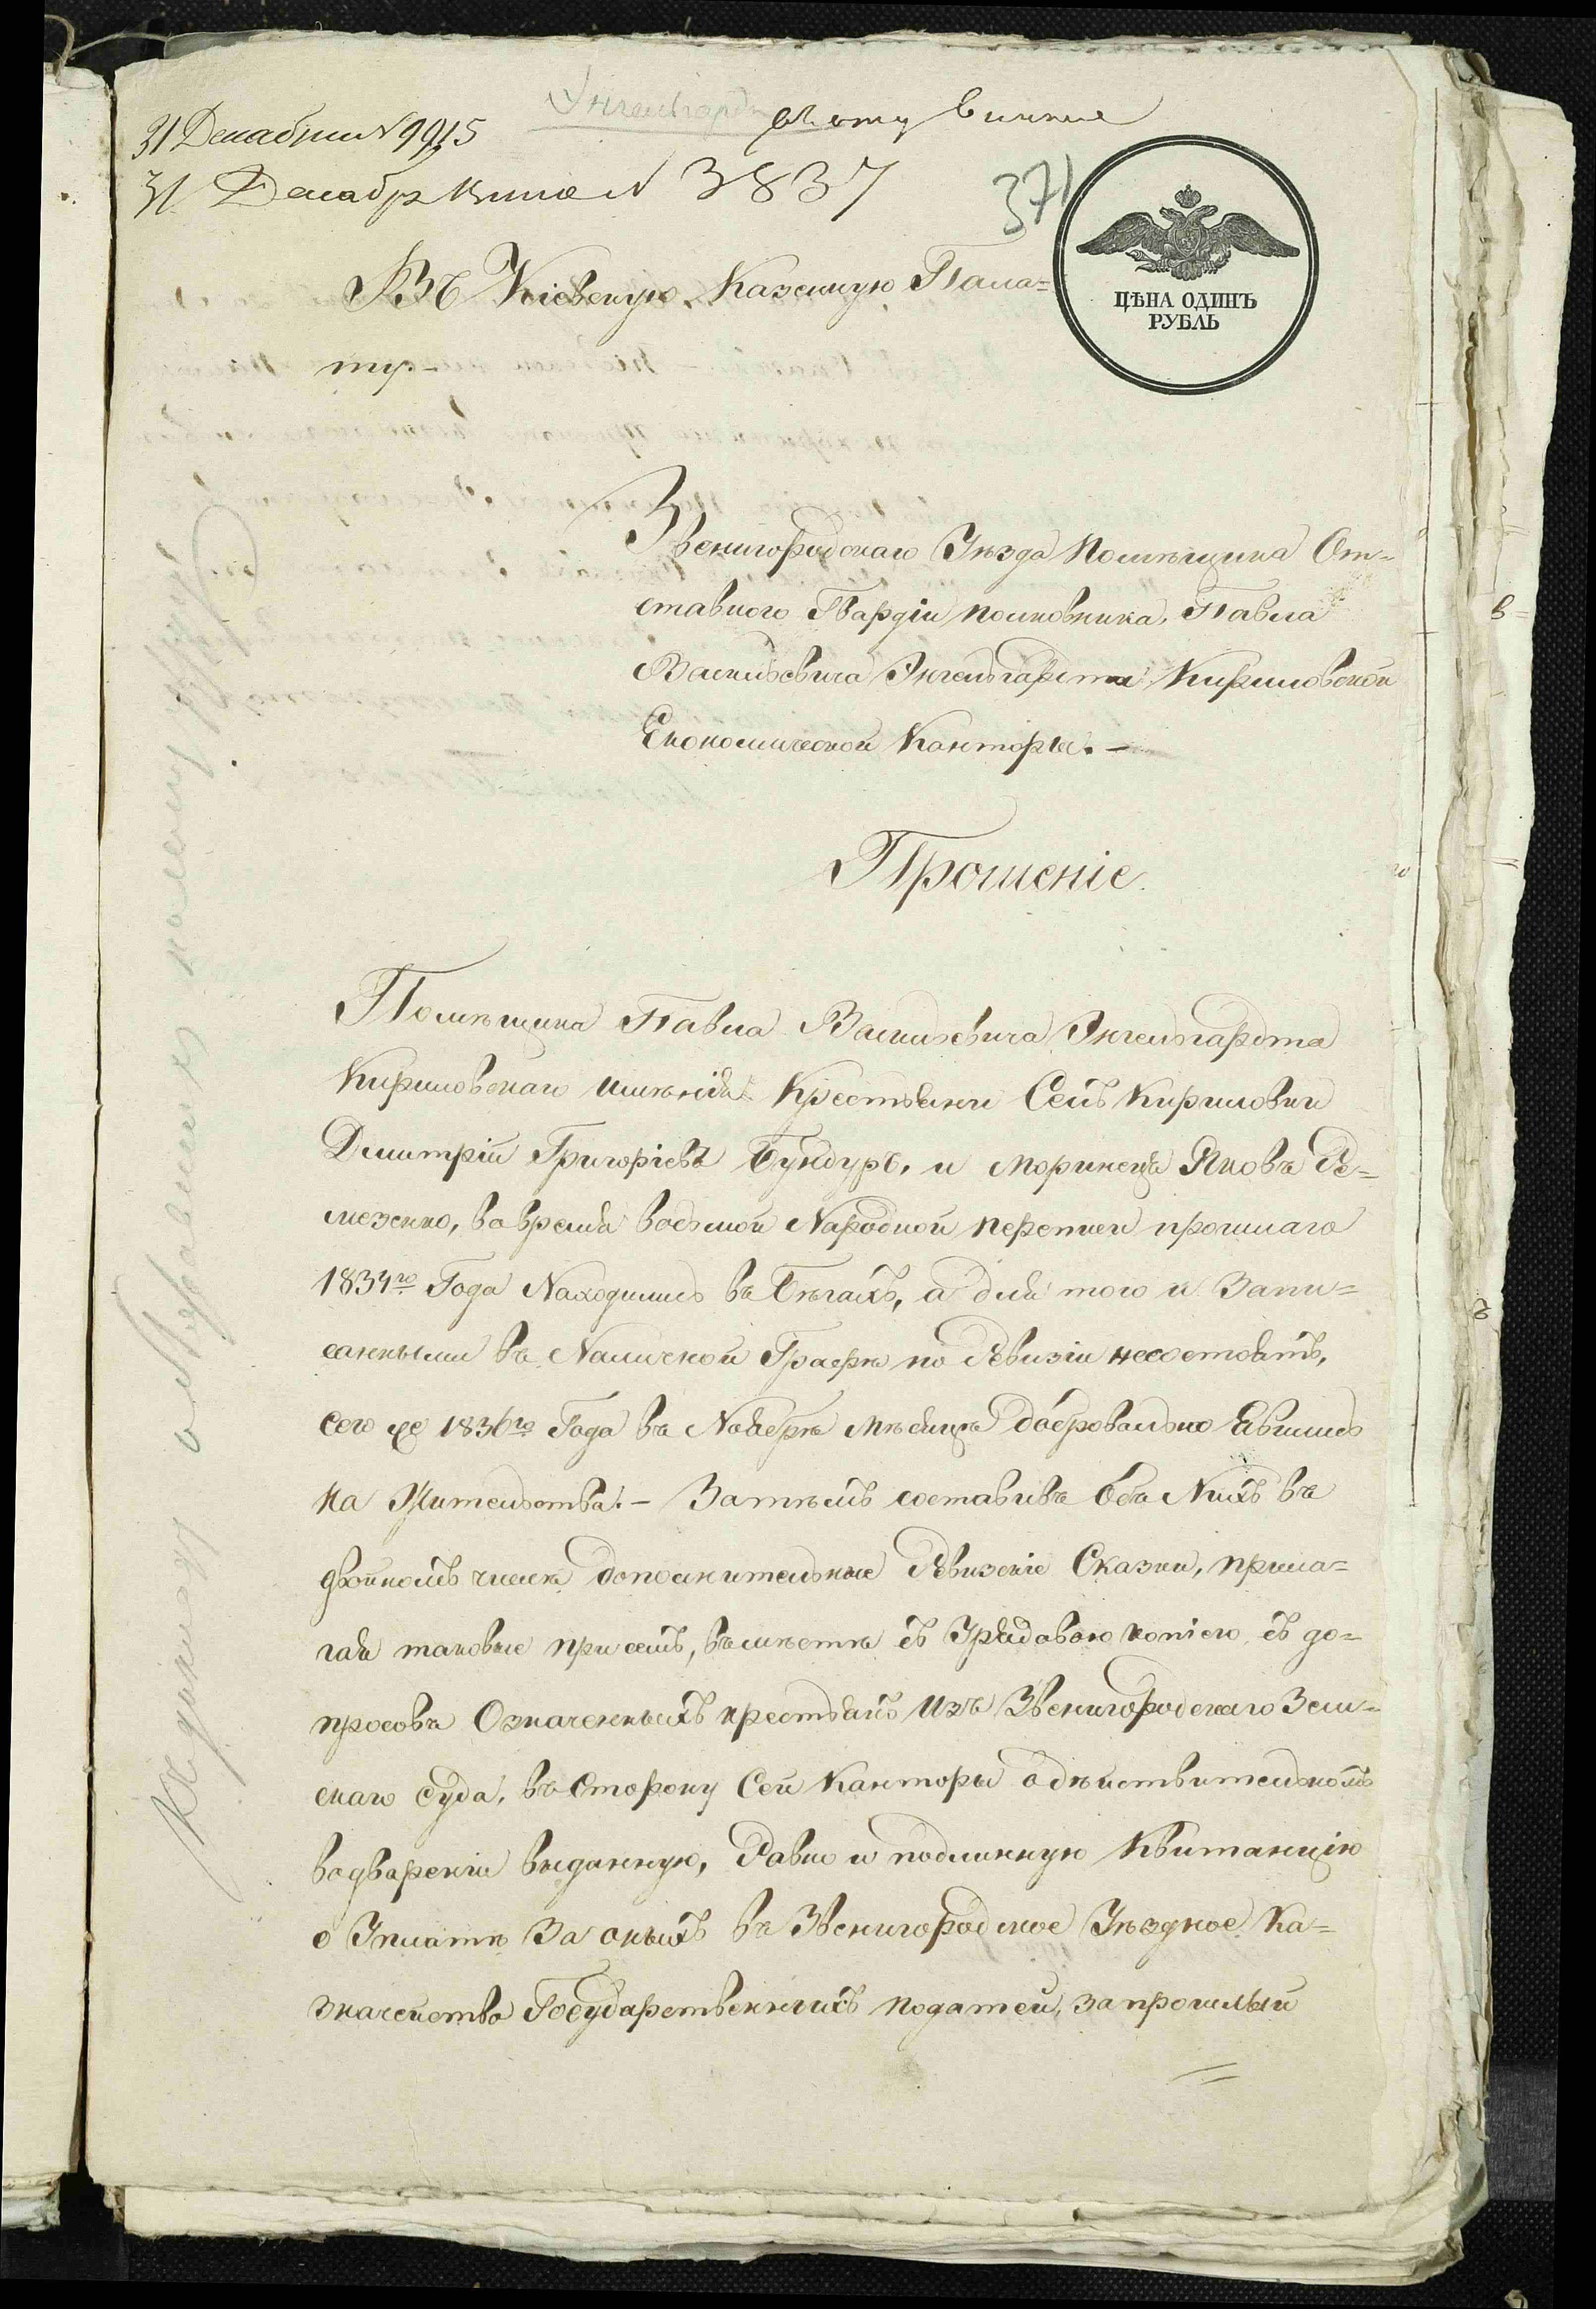 Энгельгардт
31 Декабря № 9915
31 Декабр № 3837
371
ЦѢНА ОДИНЪ
РУБЛЬ
Въ Кіевскую Казенную Пала=
ту.-
Звенигородскаго Уѣзда Помѣщика От=
ставного Гвардіи полковника, Павла
Васильевича Энгельгардта Кириловской
Економической Канторы.-
Прошеніе.
Помѣщика Павла Васильевича Энгельгардта
Кириловскаго имѣнія Крестьяни Селъ Кириловки
Димитрій Григоріевъ Бундуръ, и Моринецъ Яковъ Ре=
мезенко, вовремя восьмой Народной переписи прошлаго
1834го Года Находились въ Бѣгахъ, а для того и Запи=
санными въ Наличной Графѣ по Ревизіи несостоятъ,
сего же 1836го Года въ Ноябрѣ Мѣсяцѣ добровольно Явились
на Жительства.- Затѣмъ составивъ Объ Нихъ въ
двойномъ числѣ дополнительные Ревизскіе Сказки, прила=
гая таковые присемъ, вмѣстѣ съ Урядовою копіею съ до=
просовъ Означенныхъ крестьянъ Изъ Звенигородскаго Зем=
скаго Суда, въ Сторону Сей Канторы одѣйствительномъ
водвареніи выданную, Равно и подлинную Квитанцію
о Уплатѣ За оныхъ въ Звенигородское Уѣздное Ка=
значейство Государственныхъ податей, запрошлый